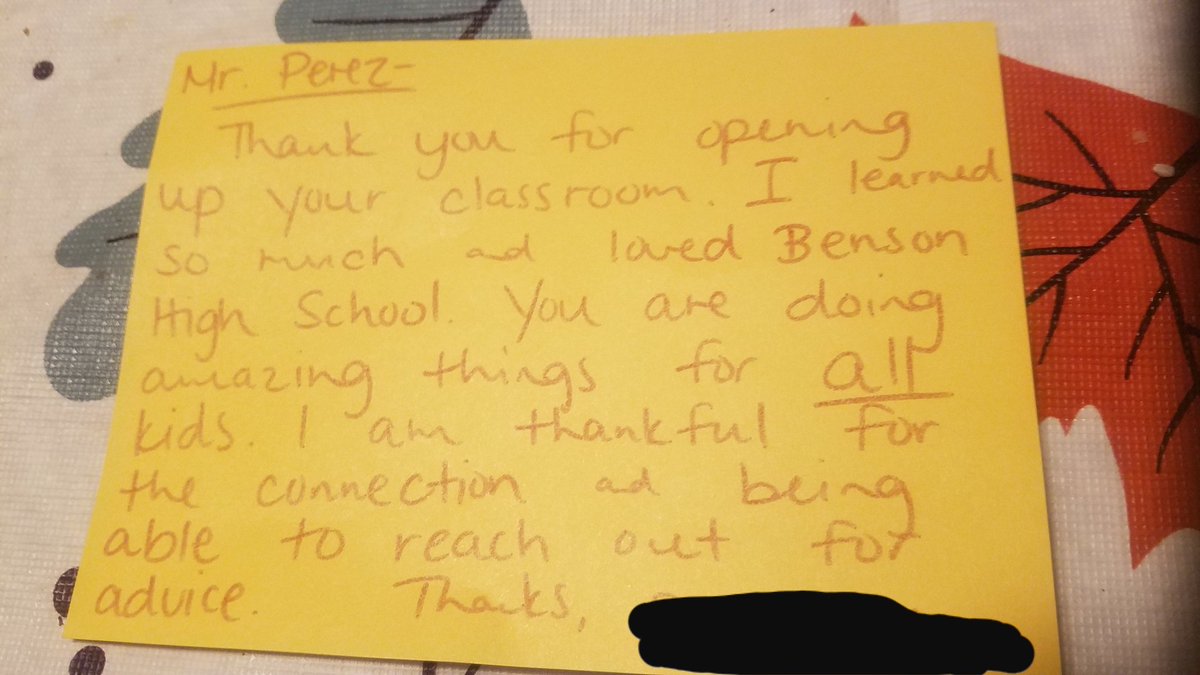 Mr. Perez-
Thank you for opening
up your classroom. I learned
so much ad loved Benson
High School. You are doing
amazing things for all
kids. I am thankful for
the connection ad being
able to reach out for
advice. Thanks,